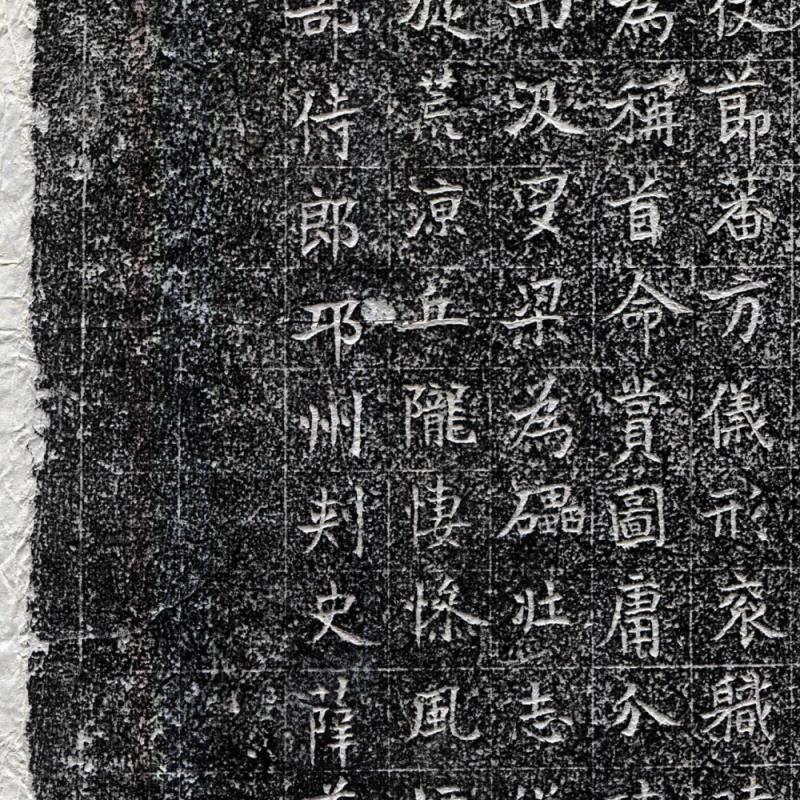 使節蕃方儀形袞職
為稱首命賞圖庸介
而汲叟梁為礧壯志
旋荒涼丘隴悽慘風
部侍郎邛州刺史薛